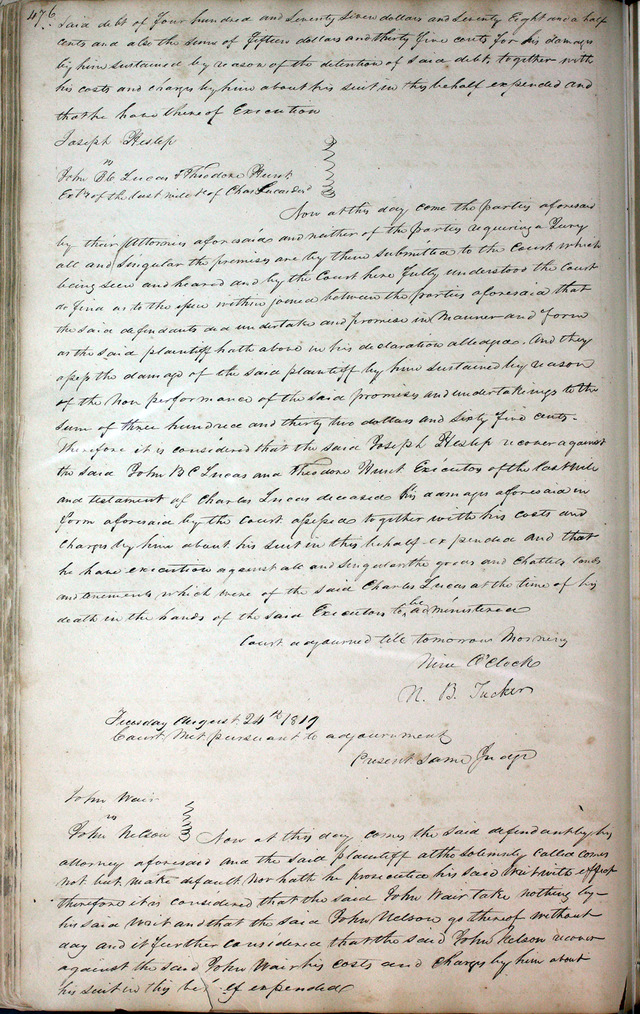 476.
Said debt of Four hundred and Seventy Seven dollars and Seventy Eight and a half
cents and also the sum of Fifteen dollars and thirty five cents for his damages
by him sustained by reason of the detention of said debt together with
his costs and charges by him about his suit in this behalf expended and
that he have thereof Execution
Joseph Heslep
vs
John B C Lucas & Theodore Hunt
Exts of the last will &c of Chas Lucas decd
Now at this day come the parties aforesaid
by their Attornies aforesaid and neither of the parties requiring a Jury
all and Singular the premises are by them Submitted to the Court which
being seen and heared and by the Court here fully understood the Court
do find as to the issue within joined between the parties aforesaid that
the said defendants did undertake and promise in Manner and form
as the said plaintiff hath above in his declaration alledged. And they
assess the damage of the said plaintiff by him sustained by reason
of the Non performance of the said promises and undertakings to the
sum of three hundred and thirty two dollars and Sixty five cents.
Therefore it is considered that the said Joseph Heslep recover against
the said John B C Lucas and Theodore Hunt Executors of the last will
and testament of Charles Lucas deceased his damages aforesaid in
form aforesaid by the court assessed together with his costs and
charges by him about his suit in this behalf expended and that
he have execution against all and singular the goods and chattels lands
and tenements which were of the said Charles Lucas at the time of his
death in the hands of the said Executors to be administered
Court adjourned till tomorrow Morning
Nine O'Clock
N. B. Tucker
Tuesday August 24th 1819
Court Met pursuant to adjournment
Present Same Judge
John Wair
vs
John Nelson
Now at this day comes the said defendant by his
attorney aforesaid and the said plaintiff altho Solemnly Called comes
not but make default Nor hath he prosecuted his said Writ with effect
therefore it is considered that the said John Wair take nothing by
his said writ and that the said John Nelson go thereof without
day and it further considered that the said John Nelson recover
against the said John Wair his costs and charges by him about
his suit in this behalf expended